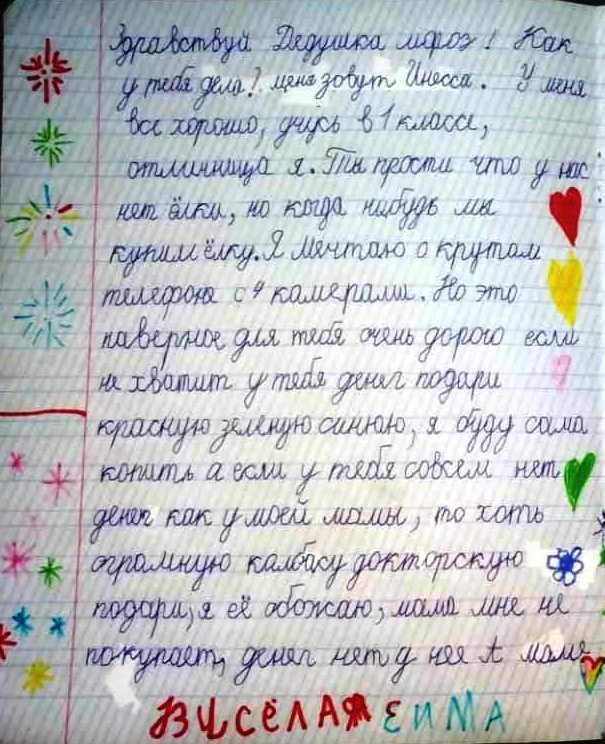 Здравствуй Дедушка мороз! Как
у тебя дела? меня зовут Инесса. У меня
все хорошо, учусь в 1 классе,
отличница я. Ты прости что у нас
нет ёлки, но когда нибудь мы
купим ёлку. Я мечтаю о крутом
телефоне с 4 камерами. Но это
наверное для тебя очень дорого если
не хватит у тебя денег подари
красную зеленую синюю, я буду сама
копить а если у тебя совсем нет
денег как у моей мамы, то хоть
огромную калбасу докторскую
подари, я её обожаю, мама мне не
покупает, денег нет у нея А маме
ВИСЁЛАЯ ЕИМА